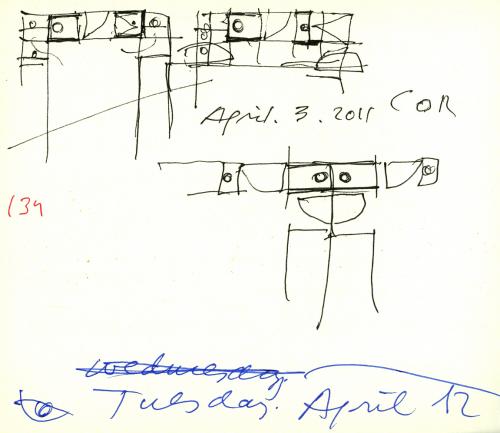 April. 3. 2011 COR
134
Wednesday.
Tuesday. April 12